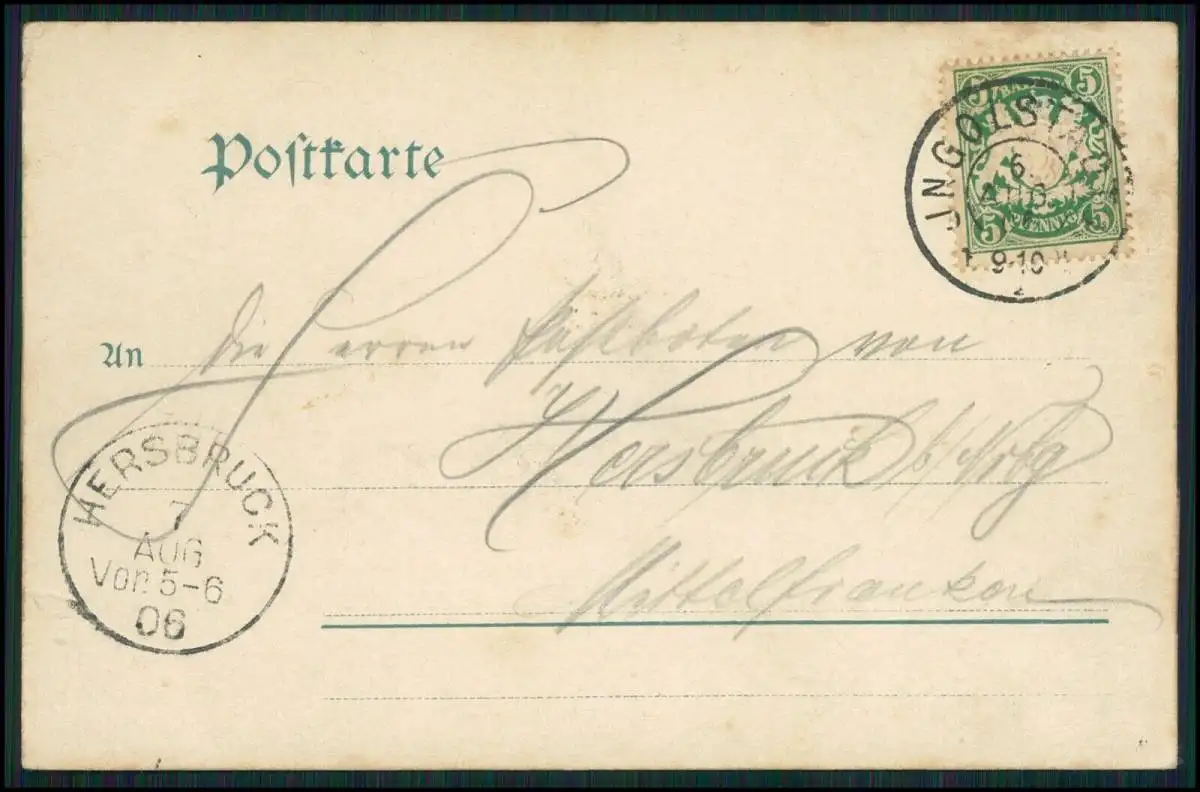 Postkarte
5 5
5 PFENNIG 5
INGOLSTADT
6.
AUG.
9-10
2
An die Herren Postboten von
Hersbruck b/Nbg
Mittelfranken
HERSBRUCK
7
AUG
Vor. 5-6
06